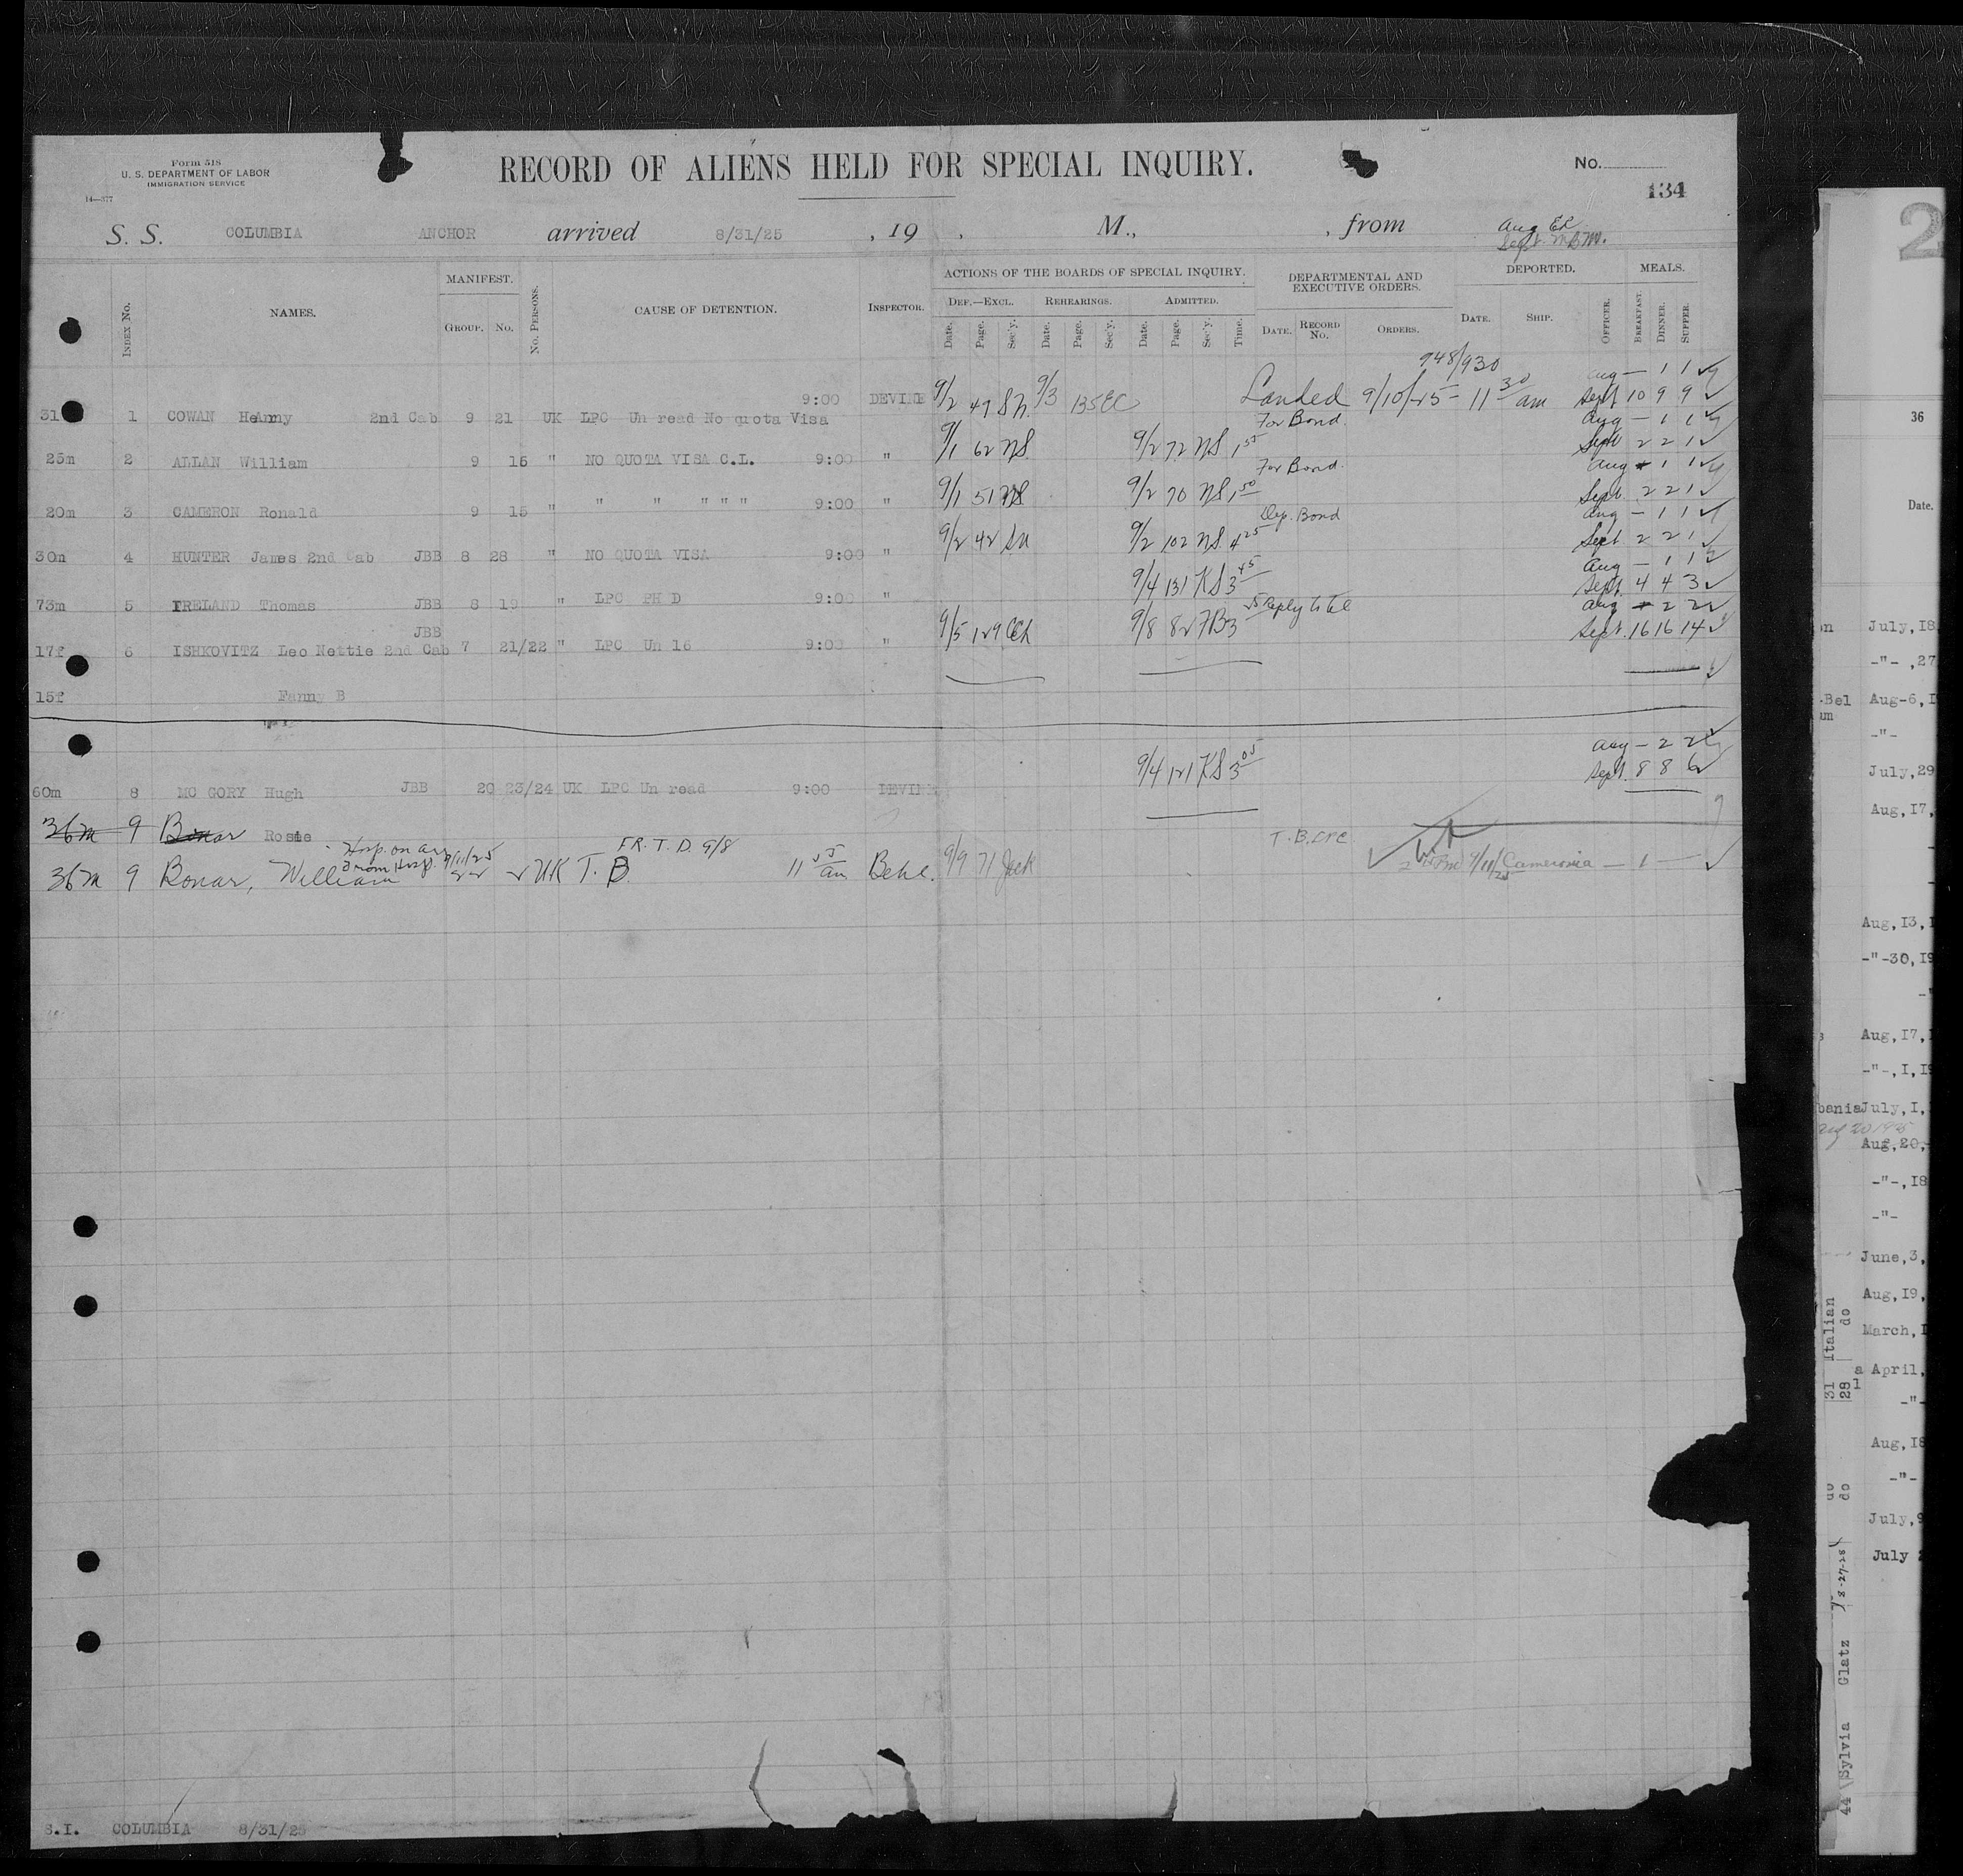 Form 518
U. S. DEPARTMENT OF LABOR
IMMIGRATION SERVICE
14—377
RECORD OF ALIENS HELD FOR SPECIAL INQUIRY.
No.
134
S. S. COLUMBIA ANCHOR arrived 8/31/25 , 19 , M., , from Aug EC
Sept.
INDEX No. NAMES. MANIFEST. GROUP. No. No. PERSONS. CAUSE OF DETENTION. INSPECTOR.
ACTIONS OF THE BOARDS OF SPECIAL INQUIRY. DEPARTMENTAL AND EXECUTIVE ORDERS. DEPORTED. MEALS.
DEF.—EXCL. REHEARINGS. ADMITTED.
Date. Page. Sec'y. Date. Page. Sec'y. Date. Page. Sec'y. Time. DATE. RECORD No. ORDERS. DATE. SHIP. OFFICER. BREAKFAST. DINNER. SUPPER.
948/930
Aug — 1 1
31 1 COWAN Henny 2nd Cab 9 21 UK LPC Un read No quota Visa 9:00 DEVINE 9/2 49 9/3 135 EC Landed 9/10/25 — 11 30 am Sept 10 9 9
For Bond. Aug — 1 1
25m 2 ALLAN William 9 15 " NO QUOTA VISA C.L. 9:00 " 9/1 62 NS 9/2 72 NS 1 55 Sept 2 2 1
For Bond. Aug 1 1
20m 3 CAMERON Ronald 9 15 " " " " " " 9:00 " 9/1 51 NS 9/2 70 NS 1 50 Sept. 2 2 1
Dep. Bond Aug — 1 1
30m 4 HUNTER James 2nd Cab JBB 8 28 " NO QUOTA VISA 9:00 " 9/2 42 9/2 102 NS 4 25 Sept 2 2 1
Aug — 1 1
73m 5 IRELAND Thomas JBB 8 19 " LPC PH D 9:00 " 9/4 131 KS 3 45 Sept. 4 4 3
Reply to tel Aug 2 2
JBB
17f 6 ISHKOVITZ Leo Nettie 2nd Cab 7 21/22 " LPC Un 16 9:00 " 9/5 129 9/8 82 FB 3 Sept. 16 16 14
15f Fanny B
Aug — 2 2
60m 8 MC GORY Hugh JBB 20 23/24 UK LPC Un read 9:00 DEVINE 9/4 121 KS 3 05 Sept. 8 8 6
36m 9 Bonar Rosie
Hosp. on arr.
From Hosp. 9/11/25
FR. T. D. 9/8
T.B. CFC
36m 9 Bonar, William UK T. B. 11 55 am 9/9 71 Jack 9/11/25 Cameronia — 1 —
S.I. COLUMBIA 8/31/25
2
36
Date.
July,18
-"- ,27
Aug-6,1
-"-
July,29
Aug,17,
Aug,13,1
-"-30,19
Aug,17,
-"-,1,19
July,1,
Aug 20 1925
Aug,20,
-"-,18
-"-
June,3,
Aug,19,
March,1
April,
-"-
Aug,18
-"-
July,9
July 2
31 Italian
28 do
do
do
44 Sylvia Glatz